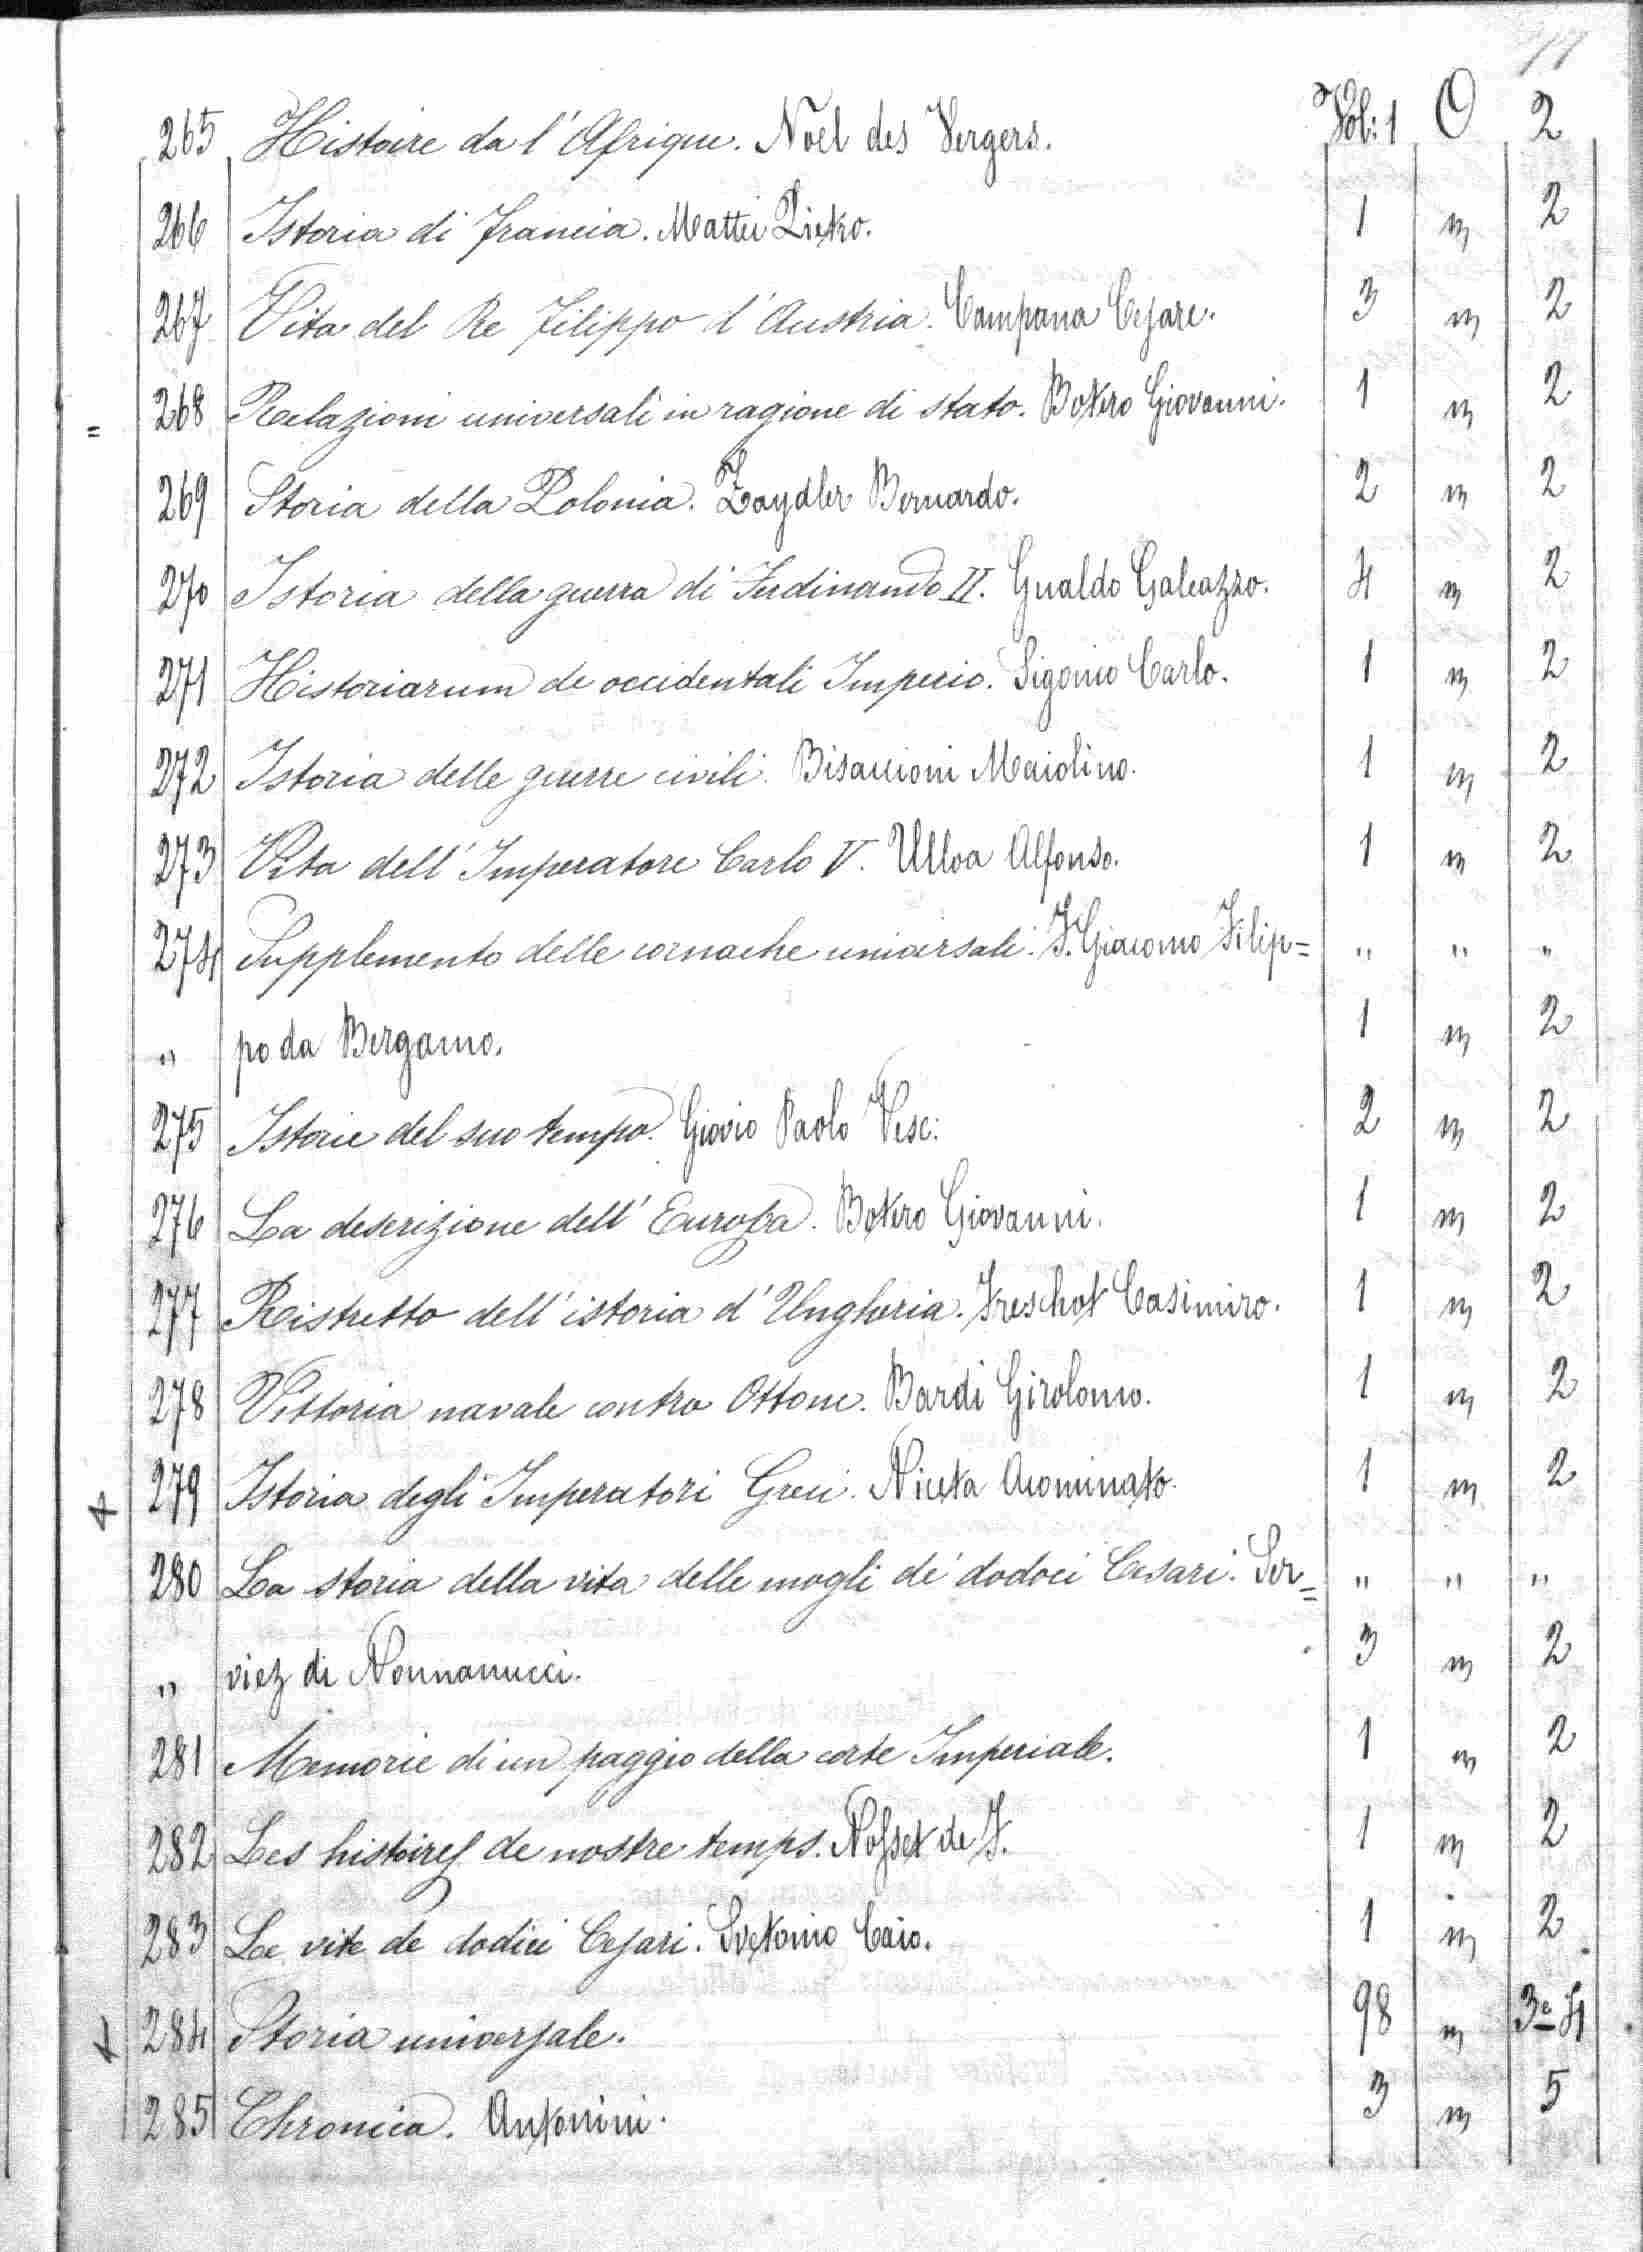 11
265 Histoire da l'Afrique. Noël des Vergers. Vol: 1 O 2
266 Istoria di Francia. Mattei Pietro. 1 " 2
267 Vita del Re Filippo d'Austria. Campana Cesare. 3 " 2
= 268 Relazioni universali in ragione di stato. Botero Giovanni. 1 " 2
269 Storia della Polonia. Zaydler Bernardo. 2 " 2
270 Istoria della guerra di Ferdinando II. Gualdo Galeazzo. 4 " 2
271 Historiarum de occidentali Imperio. Sigonio Carlo. 1 " 2
272 Istoria delle guerre civili. Bisaccioni Maiolino. 1 " 2
273 Vita dell'Imperatore Carlo V. Ulloa Alfonso. 1 " 2
274 Supplemento delle cornache universali. F. Giacomo Filip= " " "
" po da Bergamo. 1 " 2
275 Istorie del suo tempo. Giovio Paolo Vesc: 2 " 2
276 La descrizione dell'Europa. Botero Giovanni. 1 " 2
277 Ristretto dell'istoria d'Ungheria. Freschot Casimiro. 1 " 2
278 Vittoria navale contro Ottone. Bardi Girolomo. 1 " 2
+ 279 Istoria degli Imperatori Greci. Niceta Acominato. 1 " 2
280 La storia della vita delle mogli de' dodoci Cesari. Ser= " " "
" viez di Nonnanucci. 3 " 2
281 Memorie di un paggio della corte Imperiale. 1 " 2
282 Les histoires de nostre temps. Rosset de F. 1 " 2
283 Le vite de dodici Cesari. Svetonio Caio. 1 " 2
+ 284 Storia universale. 98 " 3 e 4
285 Chronica. Antonini. 3 " 5